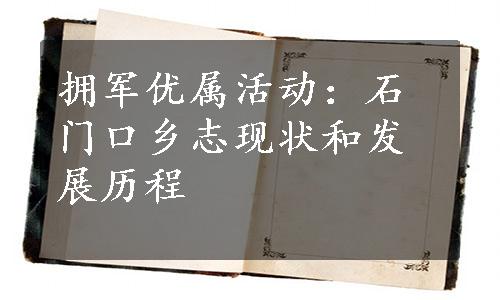 拥军优属活动：石
门口乡志现状和发
展历程